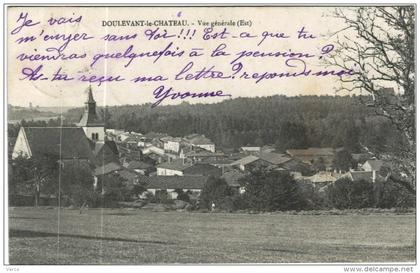 DOULEVANT-le-CHATEAU. - Vue générale (Est)
Je vais
m'ennuyer sans toi!!! Est-ce que tu
viendras quelquefois à la pension?
As-tu reçu ma lettre? réponds moi
Yvonne